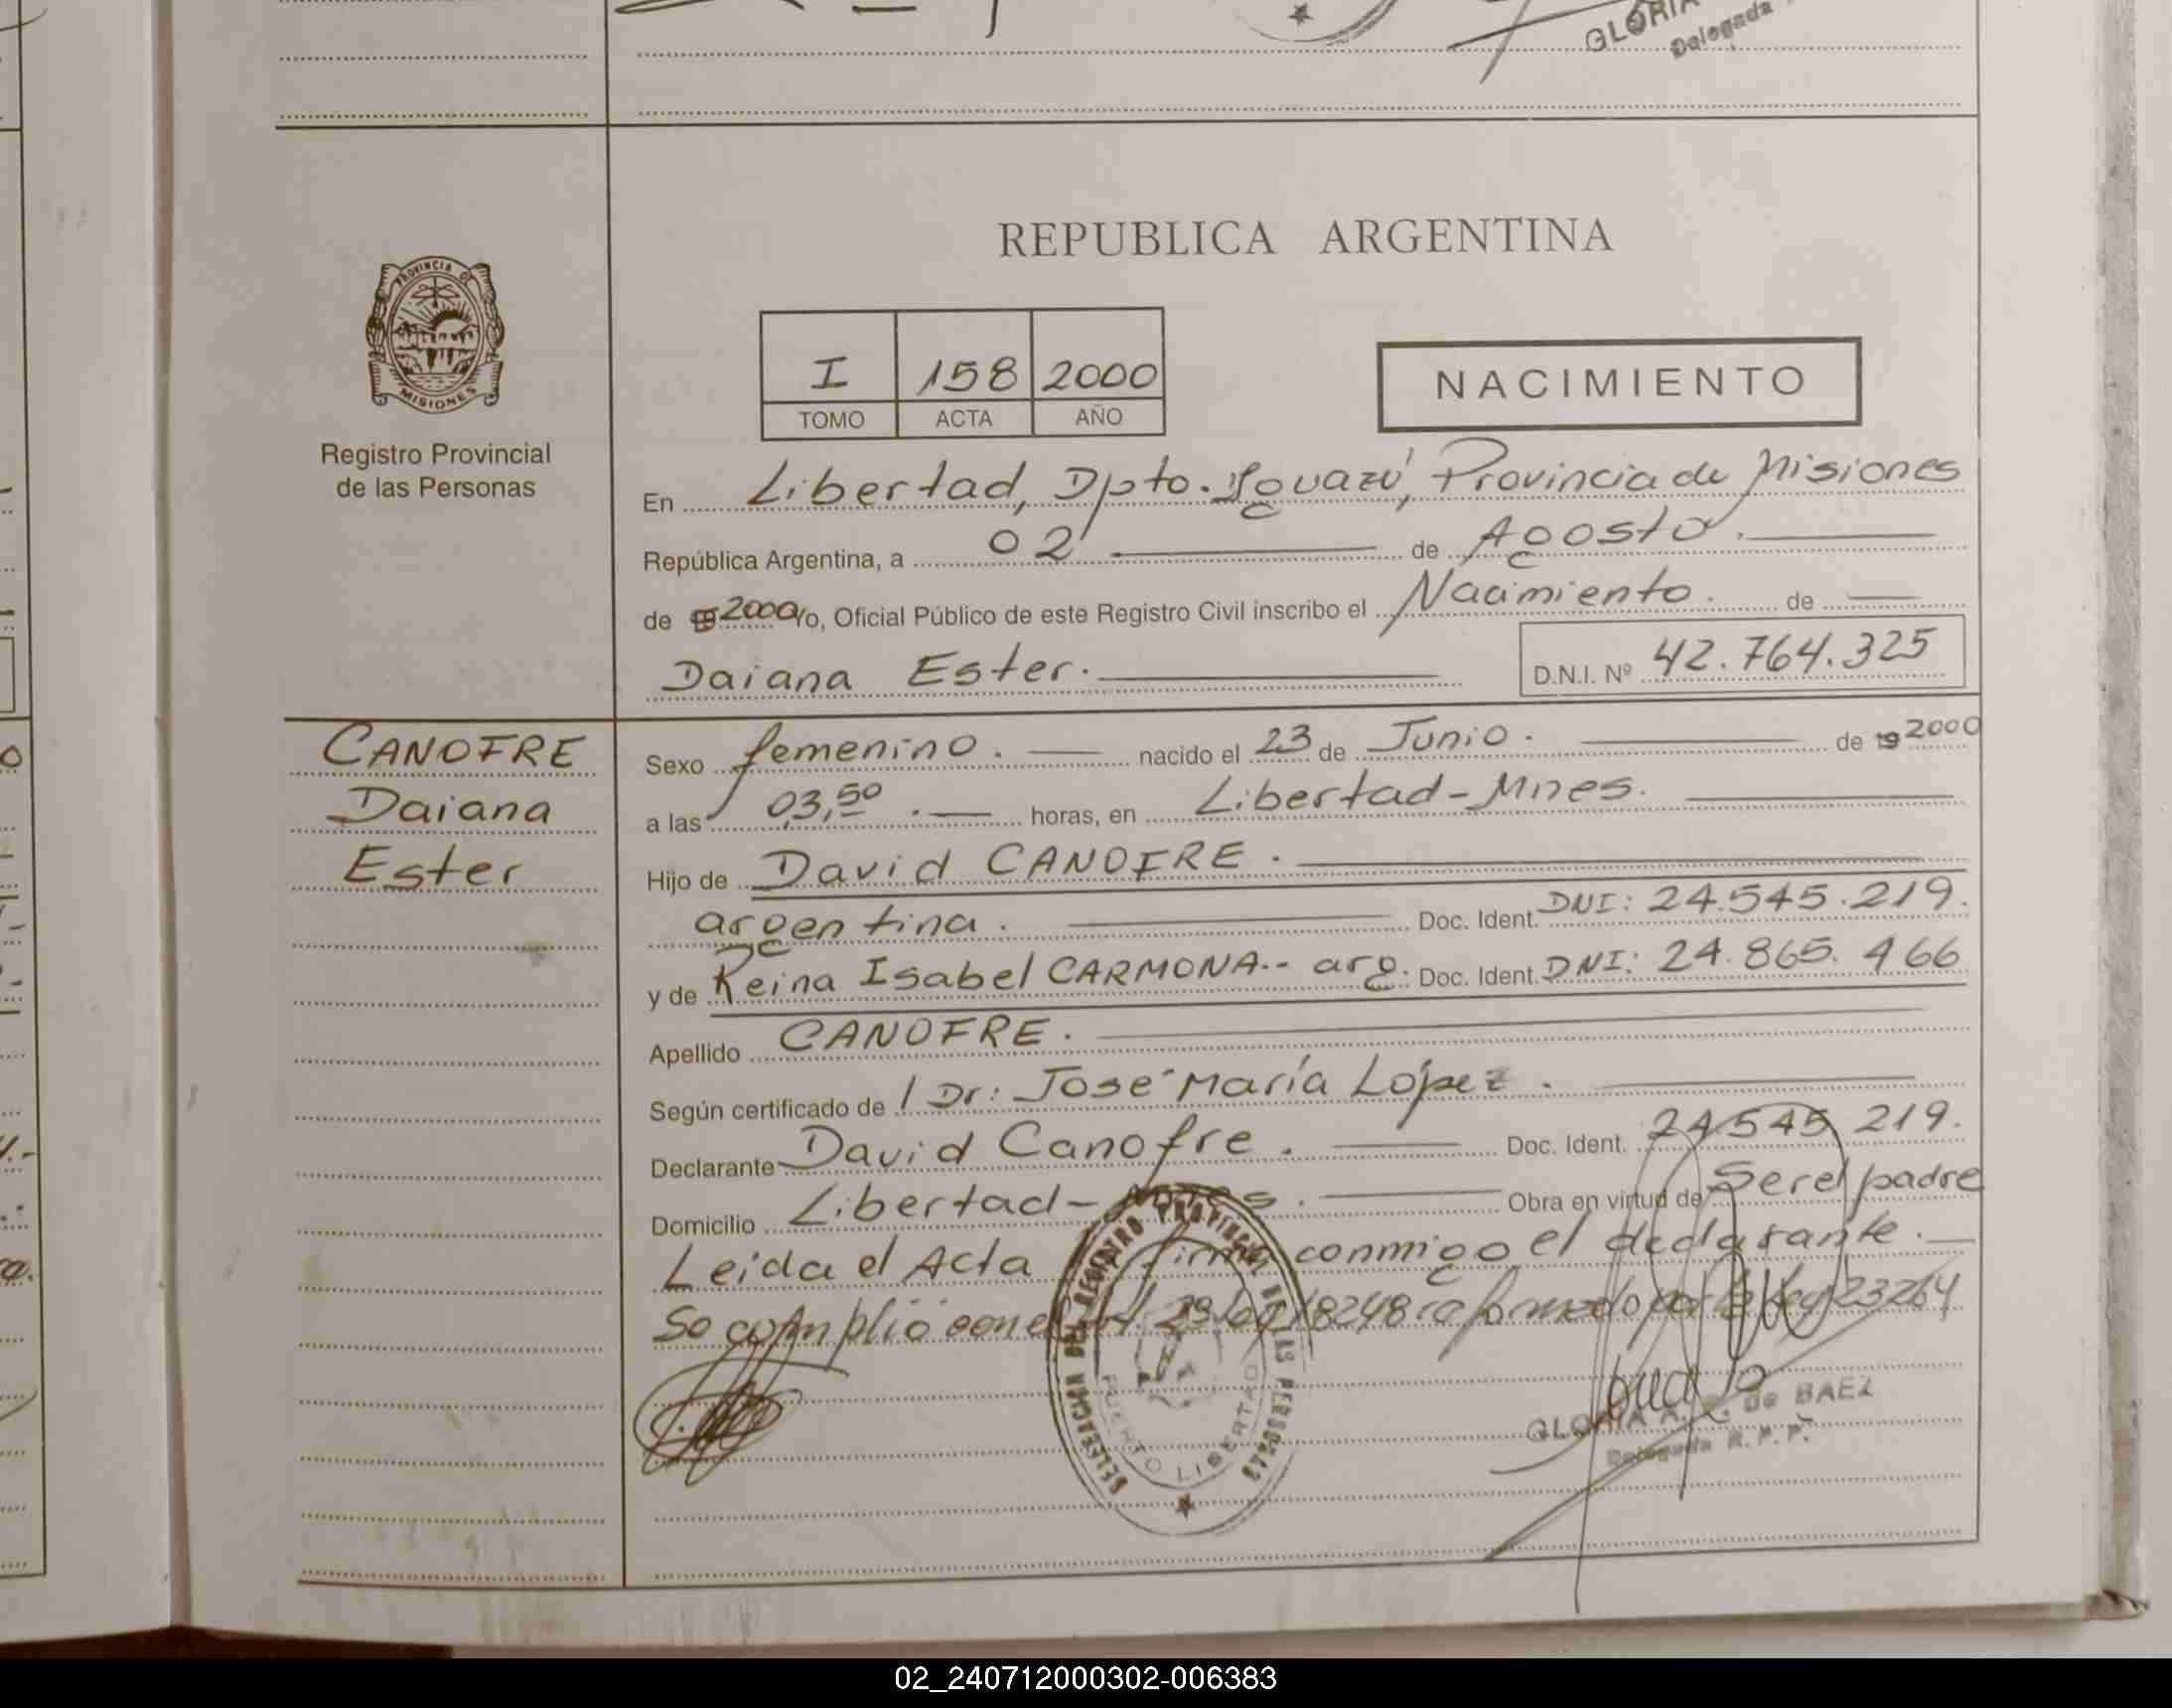 GLORIA
Delegada
REPUBLICA ARGENTINA
PROVINCIA DE
MISIONES
Registro Provincial
de las Personas
I 158 2000
TOMO ACTA AÑO
NACIMIENTO
En Libertad, Dpto. Iguazú, Provincia de Misiones
República Argentina, a 02 de Agosto.
de 19 2000 yo, Oficial Público de este Registro Civil inscribo el Nacimiento. de
Daiana Ester.
D.N.I. Nº 42.764.325
CANOFRE
Daiana
Ester
Sexo femenino. nacido el 23 de Junio. de 19 2000
a las 03,50. horas, en Libertad-Mnes.
Hijo de David CANOFRE.
argentina. Doc. Ident. DNI: 24.545.219.
y de Reina Isabel CARMONA.- arg. Doc. Ident. DNI: 24.865.466
Apellido CANOFRE.
Según certificado de Dr: José María López.
Declarante David Canofre. Doc. Ident. 24545 219.
Domicilio Libertad-Mnes. Obra en virtud de Ser el padre
Leida el Acta firma conmigo el declarante.
Se cumplió con el Art. 29 Ley 18248 reformado por la Ley 23264
DELEGACION DEL REGISTRO PROVINCIAL DE LAS PERSONAS
PUERTO LIBERTAD
GLORIA A. de BAEZ
Delegada R. P. P.
02_240712000302-006383